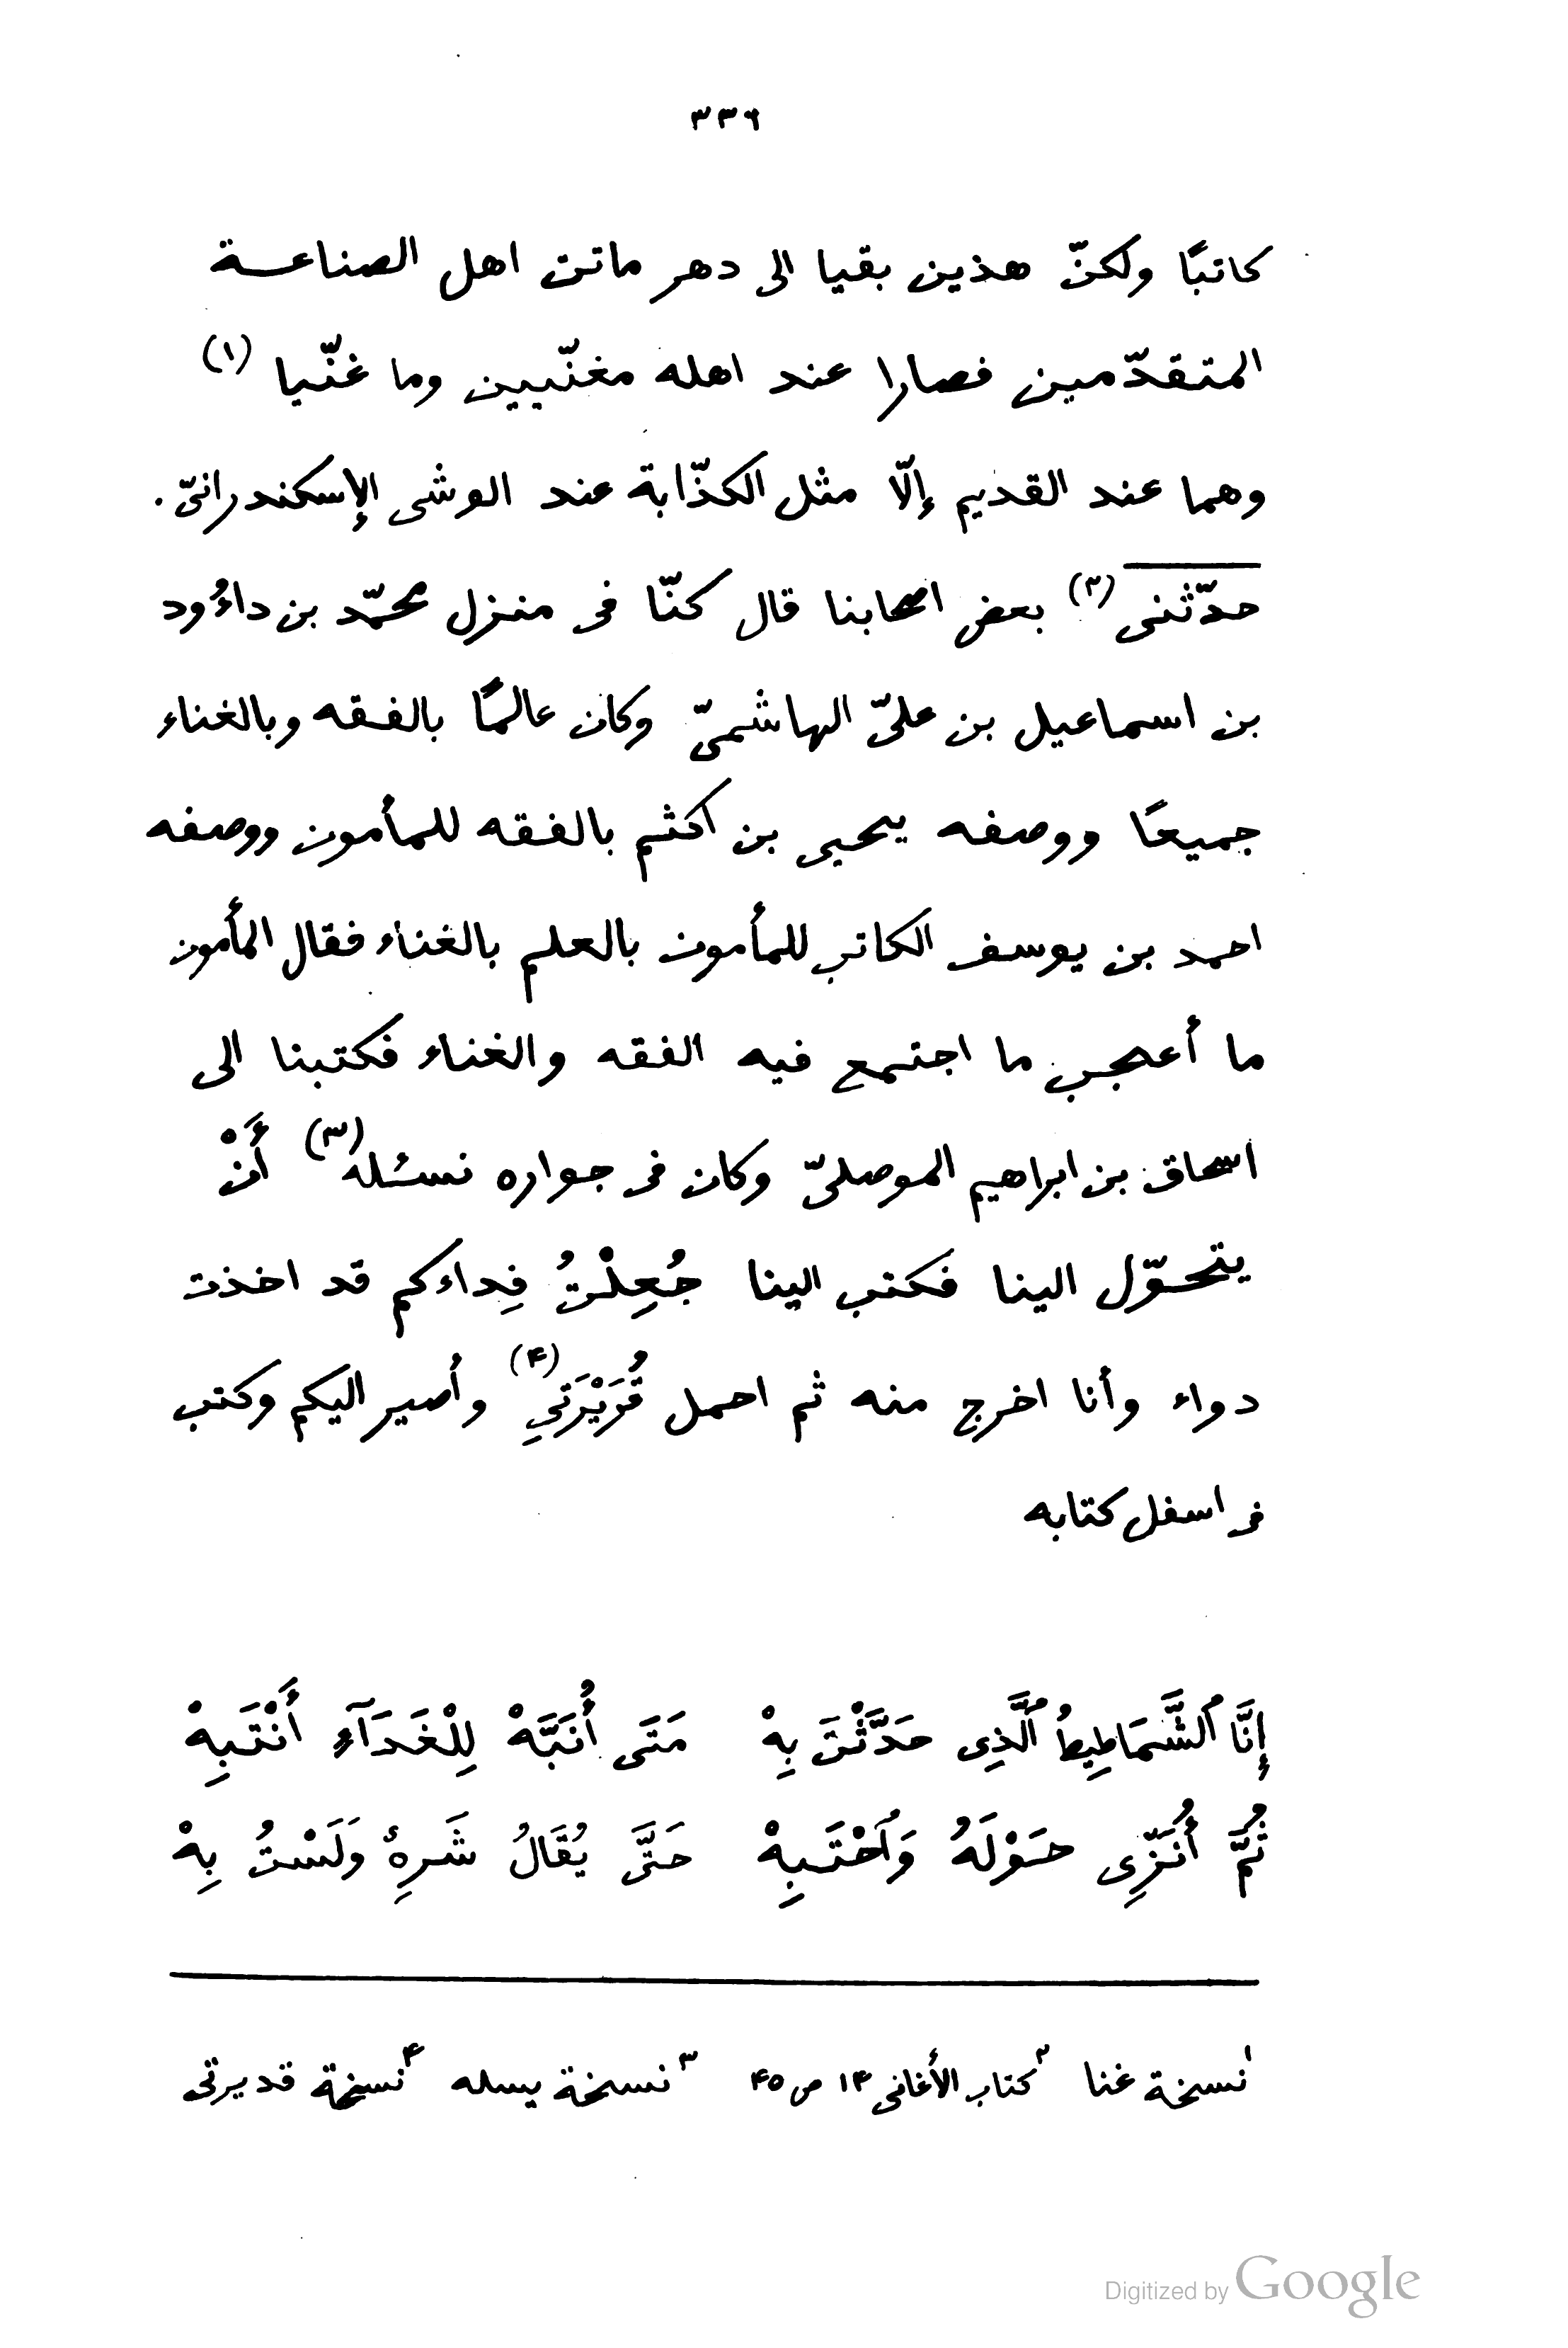 ٣٣٦
كاتبًا ولكنّ هذين بقيا الى دهر مات اهل الصناعة
المتقدّمين فصارا عند اهله مغنّيين وما غنّيا (١)
وهما عند القديم إلّا مثل الكذّابة عند الوشى الإسكندرانىّ .
حدّثنى (٢) بعض اصحابنا قال كنّا فى منزل محمّد بن داؤود
بن اسماعيل بن علىّ الهاشمىّ وكان عالمًا بالفقه وبالغناء
جميعًا ووصفه يحيى بن اكثم بالفقه للمأمون ووصفه
احمد بن يوسف الكاتب للمأمون بالعلم بالغناء فقال المأمون
ما أعجب ما اجتمع فيه الفقه والغناء فكتبنا الى
اسحاق بن ابراهيم الموصلىّ وكان فى جواره نسئله (٣) أَنْ
يتحوّل الينا فكتب الينا جُعِلْتُ فِداءكم قد اخذت
دواء وأنا اخرج منه ثم احمل قُرَيْرَتي (۴) وأصير اليكم وكتب
فى اسفل كتابه
إِنَّا ٱلشَّمَاطِيطُ ٱلَّذِى حَدَّثْتَ بِهْ مَتَى أُنَبَّهْ لِلْغَدَآءِ أَنْتَبِهْ
ثُمَّ أُنَزِّى حَوْلَهُ وَأَحْتَبِهْ حَتَّى يُقَالُ شَرِهٌ وَلَسْتُ بِهْ
١ نسخة غنا ٢ كتاب الأغانى ١۴ ص ۴٥ ٣ نسخة يسله ۴ نسخة قديرتى
Digitized by Google